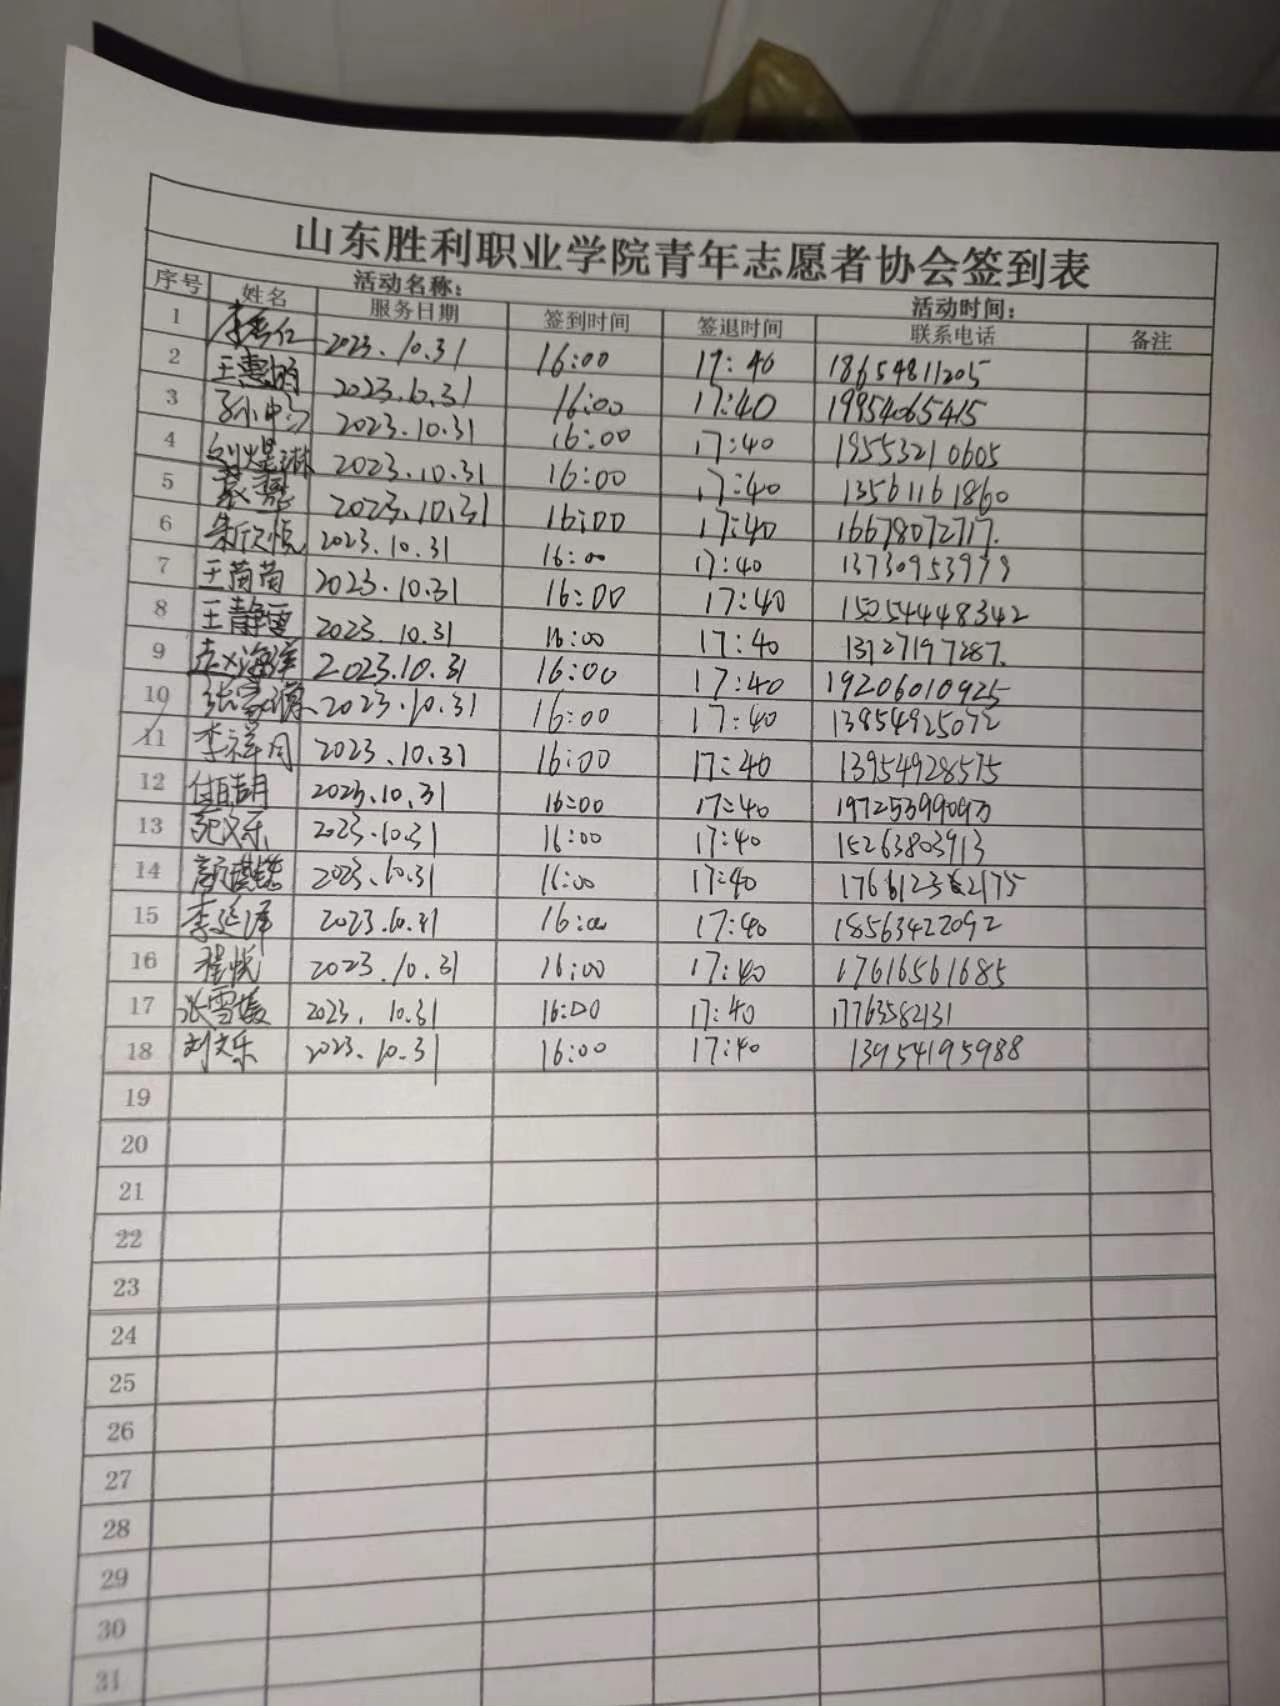 山东胜利职业学院青年志愿者协会签到表
活动名称： 活动时间：
序号 姓名 服务日期 签到时间 签退时间 联系电话 备注
1 2023.10.31 16:00 17:40 18654811205
2 2023.10.31 16:00 17:40 19954065415
3 2023.10.31 16:00 17:40 19553210605
4 2023.10.31 16:00 17:40 13561161860
5 2023.10.31 16:00 17:40 16678072717.
6 朱欣悦 2023.10.31 16:00 17:40
7 王茵茵 2023.10.31 16:00 17:40 15054448342
8 王静雪 2023.10.31 16:00 17:40
9 2023.10.31 16:00 17:40 19206010925
10 2023.10.31 16:00 17:40 13854925072
11 李祥同 2023.10.31 16:00 17:40 13954928575
12 2023.10.31 16:00 17:40
13 范文乐 2023.10.31 16:00 17:40 15263803913
14 2023.10.31 16:00 17:40
15 李延泽 2023.10.31 16:00 17:40 18563422092
16 程悦 2023.10.31 16:00 17:40 17616561685
17 张雪媛 2023.10.31 16:00 17:40 17763582131
18 刘文乐 2023.10.31 16:00 17:40 13954195988
19
20
21
22
23
24
25
26
27
28
29
30
31